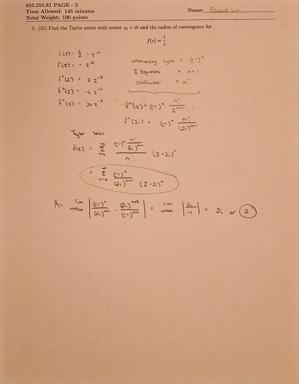 650.250.81 PAGE - 3
Time Allowed: 145 minutes
Name:
Total Weight: 100 points
5. (25) Find the Taylor series with center z₀ = 2i and the radius of convergence for
f(z) = 1/z
f(z) = 1/z = z⁻¹
alternating signs = (-1)ⁿ
f'(z) = - z⁻²
Z Exponent = n+1
f''(z) = 2 z⁻³
coefficient = n!
f⁽ⁿ⁾(z) = (-1)ⁿ n!/zⁿ⁺¹
fⁿ(2i) = (-1)ⁿ n!/(2i)ⁿ⁺¹
Taylor series
f(z) = Σ (-1)ⁿ n!/(2i)ⁿ⁺¹ / n! (z-2i)ⁿ
= Σ (-1)ⁿ/(2i)ⁿ⁺¹ (z-2i)ⁿ
R = lim n→∞ |(-1)ⁿ/(2i)ⁿ⁺¹ · (2i)ⁿ⁺²/(-1)ⁿ⁺¹| = lim n→∞ |2i/-1| = 2i or 2